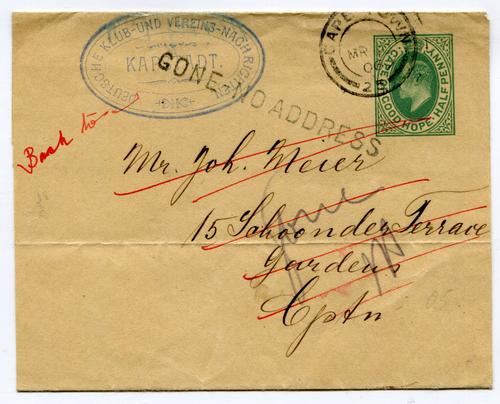 DEUTSCHE KLUB-UND VEREINS-NACHRICHTEN
KAPSTADT.
CAPE TOWN
MR
05
CAPE OF GOOD HOPE. HALF PENNY.
GONE NO ADDRESS
Back to
Mr. Joh. Meier
15 Schoonder Terrace
Gardens
Cptn
Gone